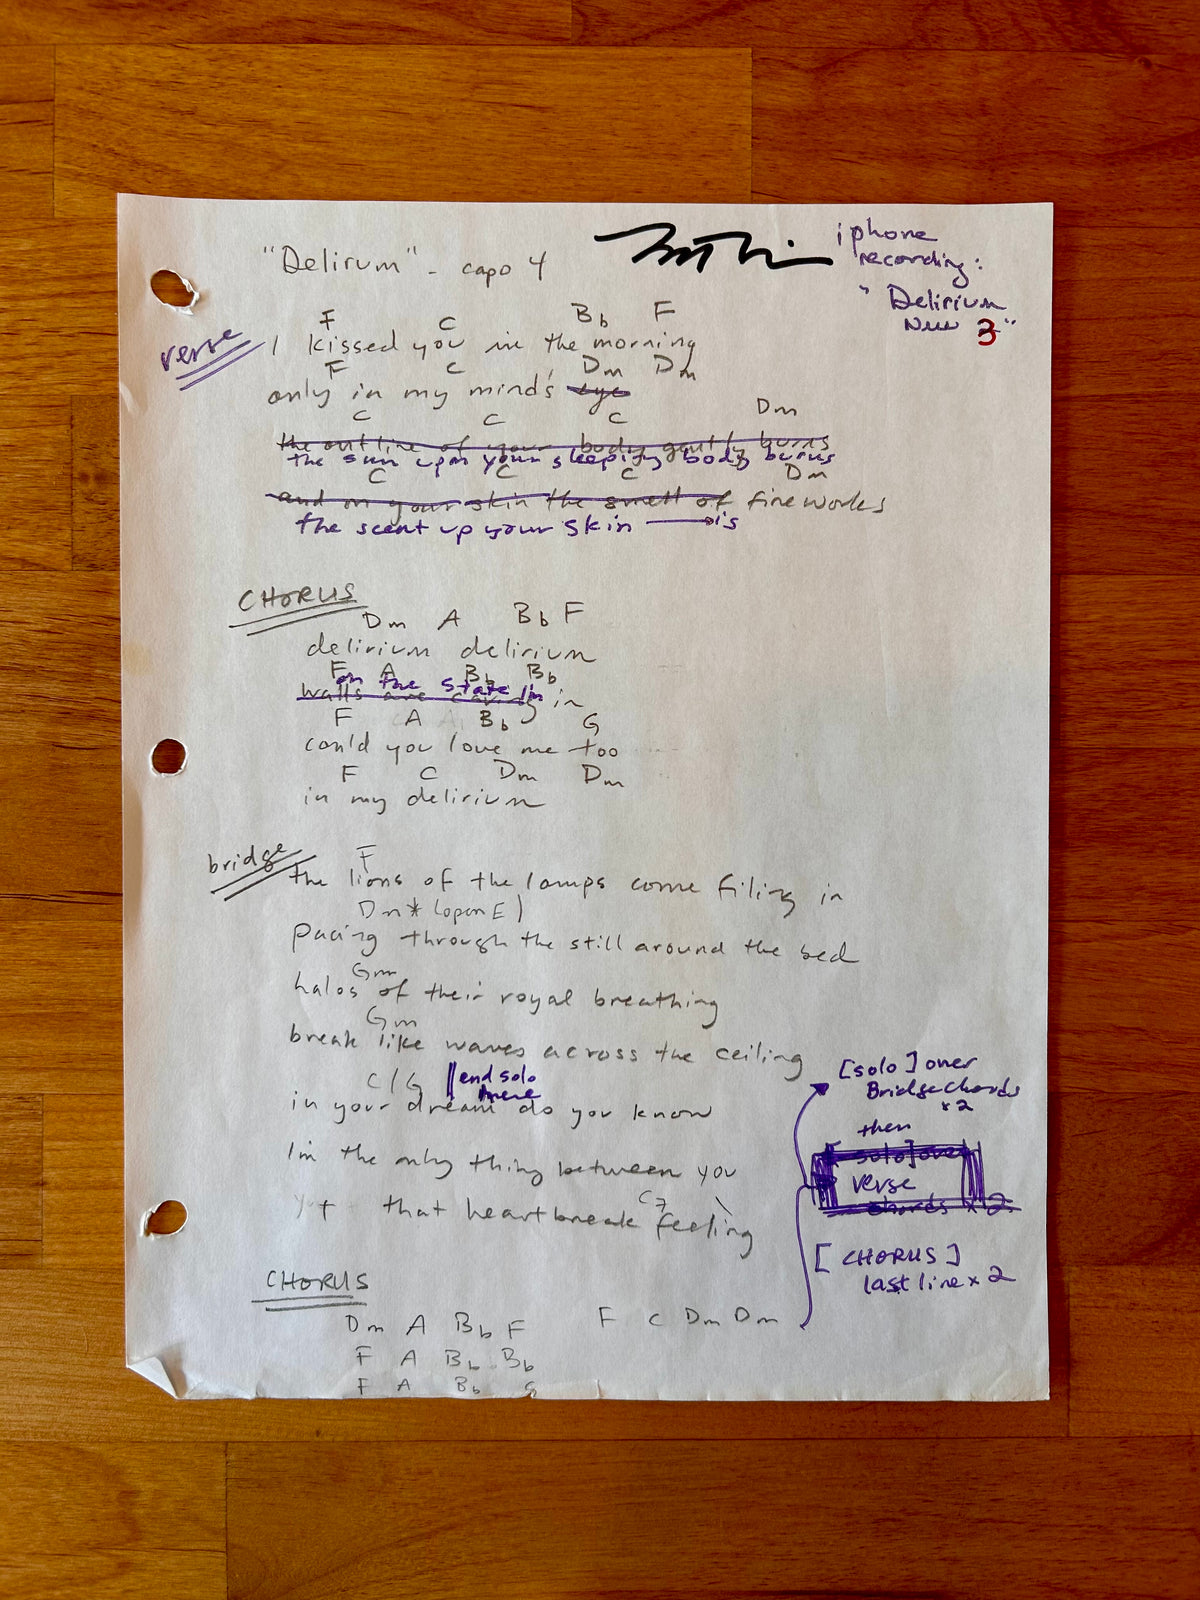 "Delirum" - capo 4
iphone
recording:
"Delirium
New 3"
verse
F C Bb F
I kissed you in the morning
F C Dm Dm
only in my mind's eye
C C C Dm
the outline of your body gently burns
the sun upon your sleeping body burns
C C C Dm
and on your skin the smell of fireworks
the scent up your skin is
CHORUS
Dm A Bb F
delirium delirium
F A Bb Bb
on the state I'm
walls are caving in
F A Bb G
could you love me too
F C Dm Dm
in my delirium
bridge
F
the lions of the lamps come filing in
Dm* (open E)
pacing through the still around the bed
Gm
halos of their royal breathing
Gm
break like waves across the ceiling
C/G || end solo
here
in your dream do you know
I'm the only thing between you
that heartbreak feeling
C7
[solo] over
Bridge chords
x2
then
[solo] over
verse
chords x 2
[CHORUS]
last line x 2
CHORUS
Dm A Bb F F C Dm Dm
F A Bb Bb
F A Bb G